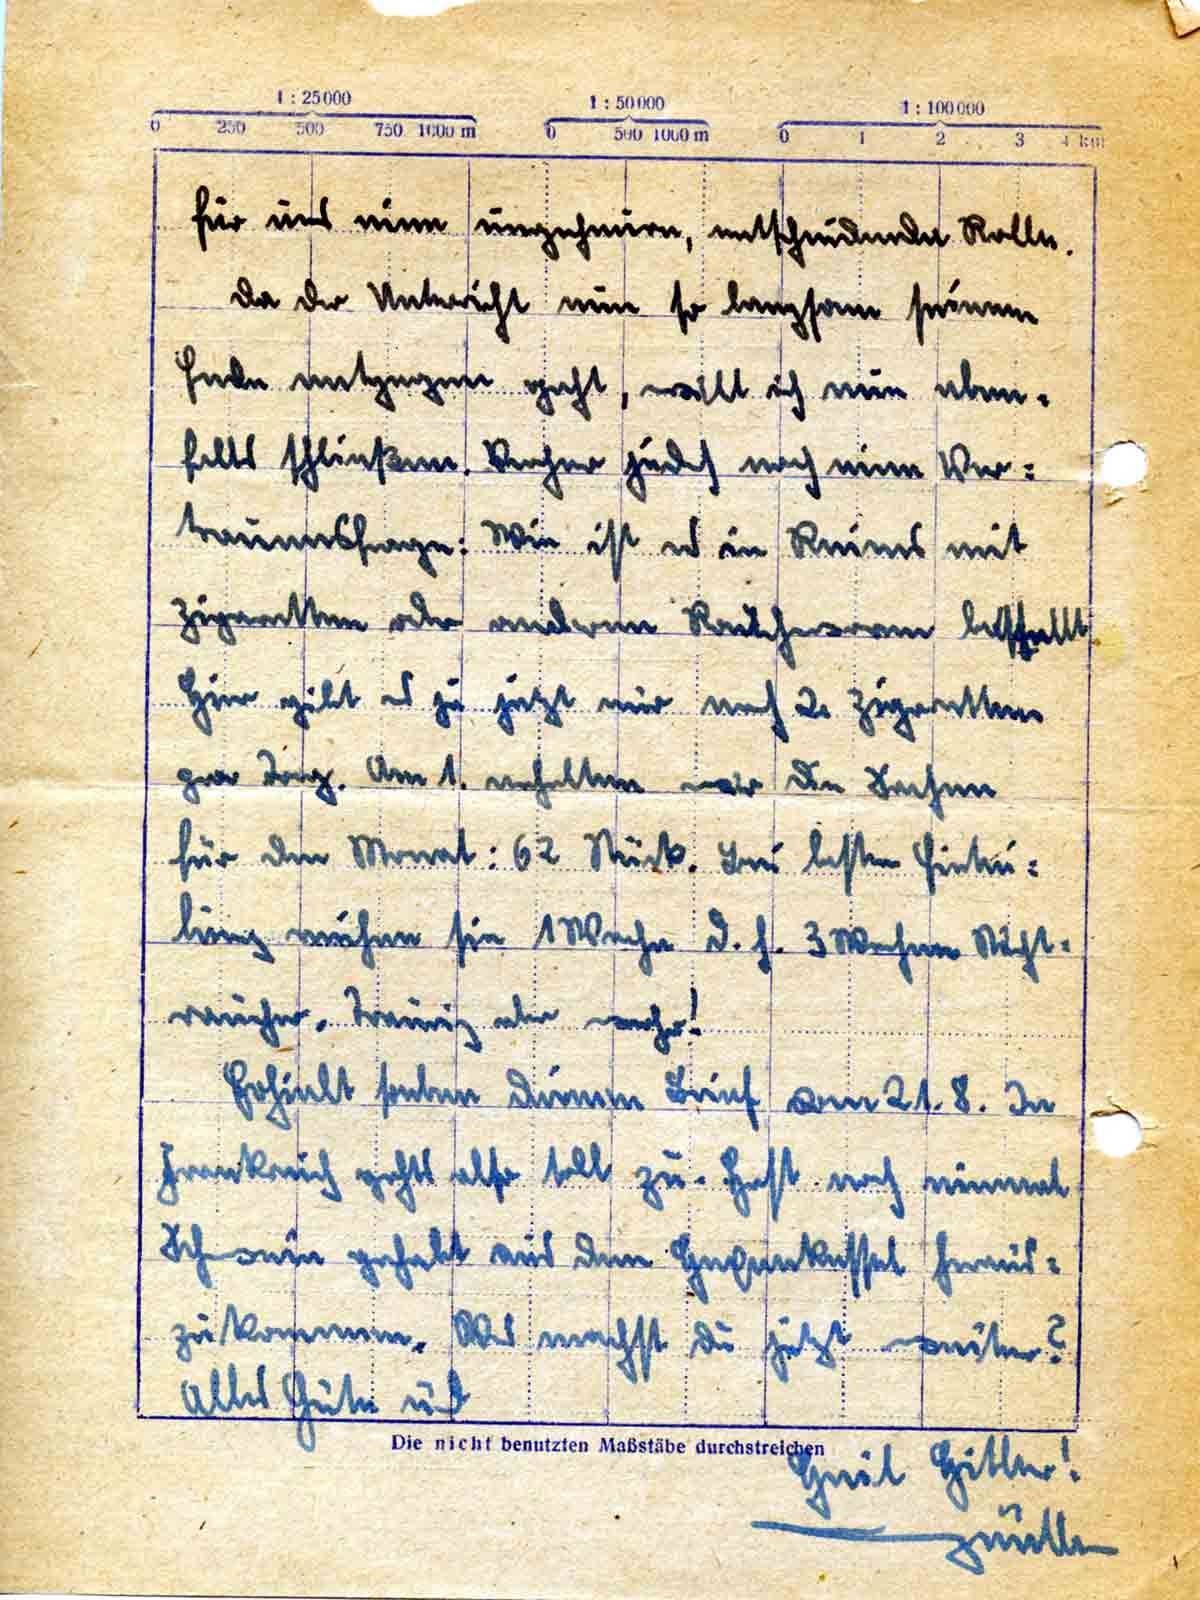 1 : 25 000 1 : 50 000 1 : 100 000
0 250 500 750 1000 m 0 500 1000 m 0 1 2 3 4 km
für uns eine ungeheure, entscheidende Rolle.
Da der Unterricht nun so langsam seinem
Ende entgegen geht, will ich nun eben-
falls schließen. Vorher jedoch noch eine Ver-
trauensfrage: Wie ist es in Reims mit
Zigaretten oder anderen Rauchwaren bestellt
Hier gibt es ja jetzt nur noch 2 Zigaretten
pro Tag. Am 1. erhalten wir die Sachen
für den Monat: 62 Stück. Bei bester Eintei-
lung reichen sie 1 Woche d. h. 3 Wochen Nicht-
raucher. Traurig aber wahr!
Erhielt soeben deinen Brief vom 21. 8. In
Frankreich gehts also toll zu. Hast noch einmal
Schwein gehabt aus dem Hexenkessel heraus-
zukommen. Was machst du jetzt weiter?
Alles Gute und
Die nicht benutzten Maßstäbe durchstreichen
Heil Hitler!